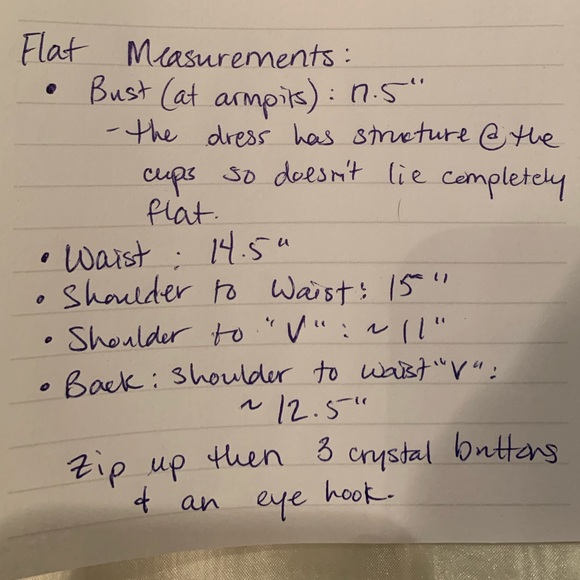 Flat Measurements:
• Bust (at armpits): 17.5"
- the dress has structure @ the
cups so doesn't lie completely
flat.
• Waist: 14.5"
• Shoulder to Waist: 15"
• Shoulder to "V": ~ 11"
• Back: shoulder to waist "V":
~ 12.5"
Zip up then 3 crystal buttons
& an eye hook.